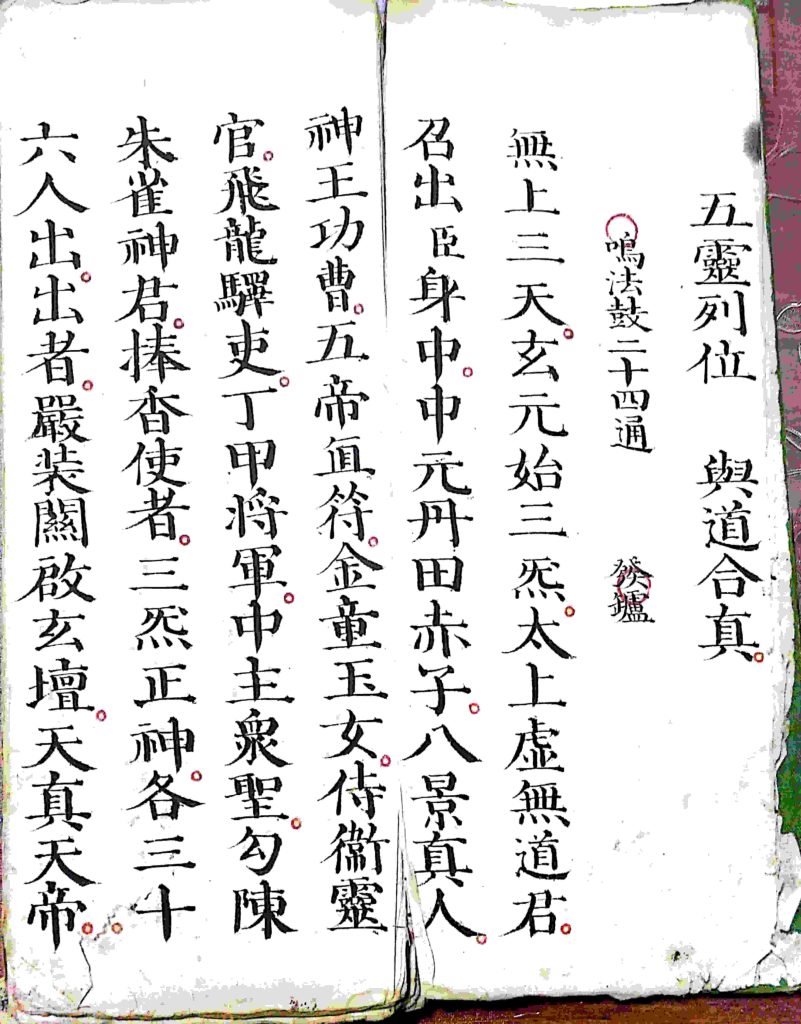 五靈列位　與道合真。
鳴法鼓二十四通　發鑪
無上三天。玄元始三炁。太上虛無道君。
召出臣身中。中元丹田赤子。八景真人。
神王功曹。五帝直符。金童玉女。侍衞靈
官。飛龍驛吏。丁甲將軍。中主衆聖。勾陳
朱雀神君。捧香使者。三炁正神。各三十
六人出。出者。嚴裝關啟玄壇。天真天帝。